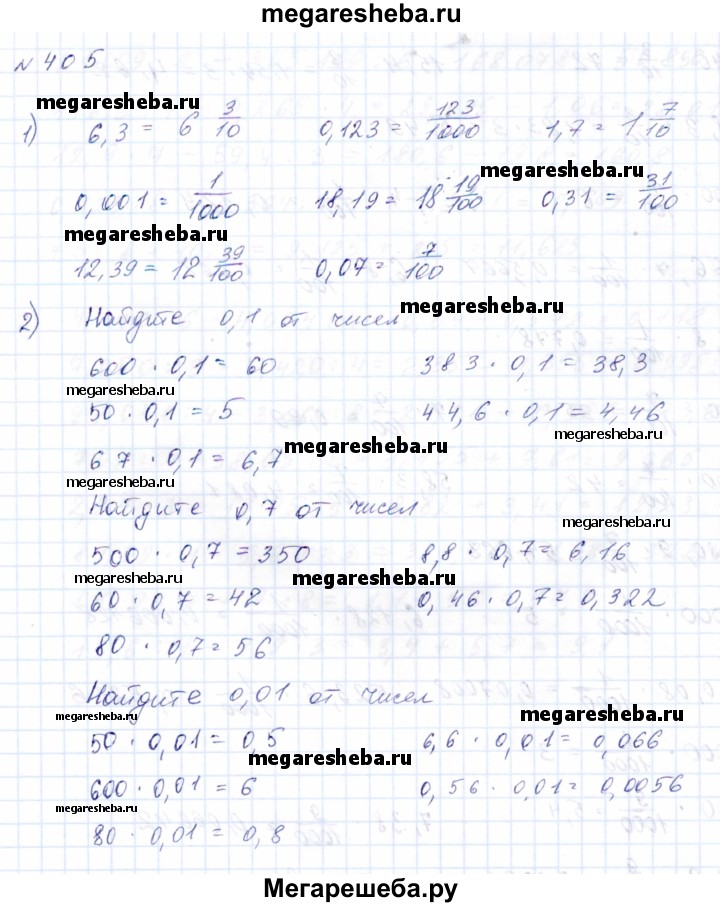 megaresheba.ru
№ 405
megaresheba.ru
1) 6,3 = 6 3/10 0,123 = 123/1000 1,7 = 1 7/10
megaresheba.ru
0,001 = 1/1000 18,19 = 18 19/100 0,31 = 31/100
megaresheba.ru
12,39 = 12 39/100 0,07 = 7/100
megaresheba.ru
2) Найдите 0,1 от чисел
600 · 0,1 = 60 383 · 0,1 = 38,3
megaresheba.ru
50 · 0,1 = 5 44,6 · 0,1 = 4,46
megaresheba.ru
megaresheba.ru
67 · 0,1 = 6,7
megaresheba.ru
Найдите 0,7 от чисел
megaresheba.ru
500 · 0,7 = 350 8,8 · 0,7 = 6,16
megaresheba.ru megaresheba.ru
60 · 0,7 = 42 0,46 · 0,7 = 0,322
80 · 0,7 = 56
Найдите 0,01 от чисел
megaresheba.ru megaresheba.ru
50 · 0,01 = 0,5 6,6 · 0,01 = 0,066
megaresheba.ru
600 · 0,01 = 6 0,56 · 0,01 = 0,0056
megaresheba.ru
80 · 0,01 = 0,8
Мегарешеба.ру